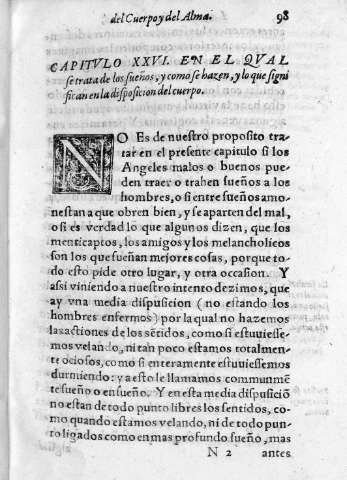 del Cuerpo y del Alma. 98
CAPITVLO XXVI. EN EL QVAL
se trata de los sueños, y como se hazen, y lo que signi
fican en la disposicion del cuerpo.
NO Es de nuestro proposito tra-
tar en el presente capitulo si los
Angeles malos o buenos pue-
den traer o trahen sueños a los
hombres, o si entre sueños amo-
nestan a que obren bien, y se aparten del mal,
o si es verdad lo que algunos dizen, que los
menticaptos, los amigos y los melancholicos
son los que sueñan mejores cosas, porque to-
do esto pide otro lugar, y otra occasion. Y
assi viniendo a nuestro intento dezimos, que
ay vna media dispusicion (no estando los
hombres enfermos) por la qual no hazemos
las actiones de los sẽtidos, como si estuuiesse-
mos velando, ni tan poco estamos totalmen-
te ociosos, como si enteramente estuuiessemos
durmiendo: y a esto le llamamos communmẽ
te sueño o ensueño. Y en esta media dispusiciõ
no estan de todo punto libres los sentidos, co-
mo quando estamos velando, ni de todo pun-
to ligados como en mas profundo sueño, mas
N 2 antes